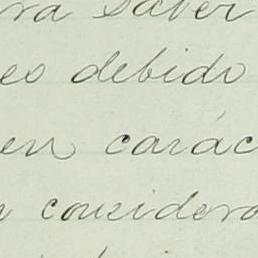 ra saber
es debido
en carác
n considera